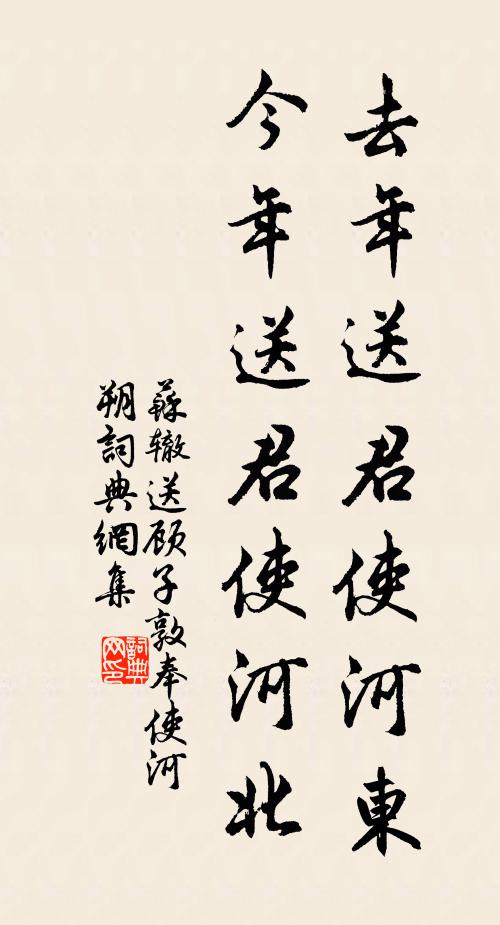 去年送君使河東
今年送君使河北
蘇辙送顾子敦奉使河
朔詞典網集
詞典网印